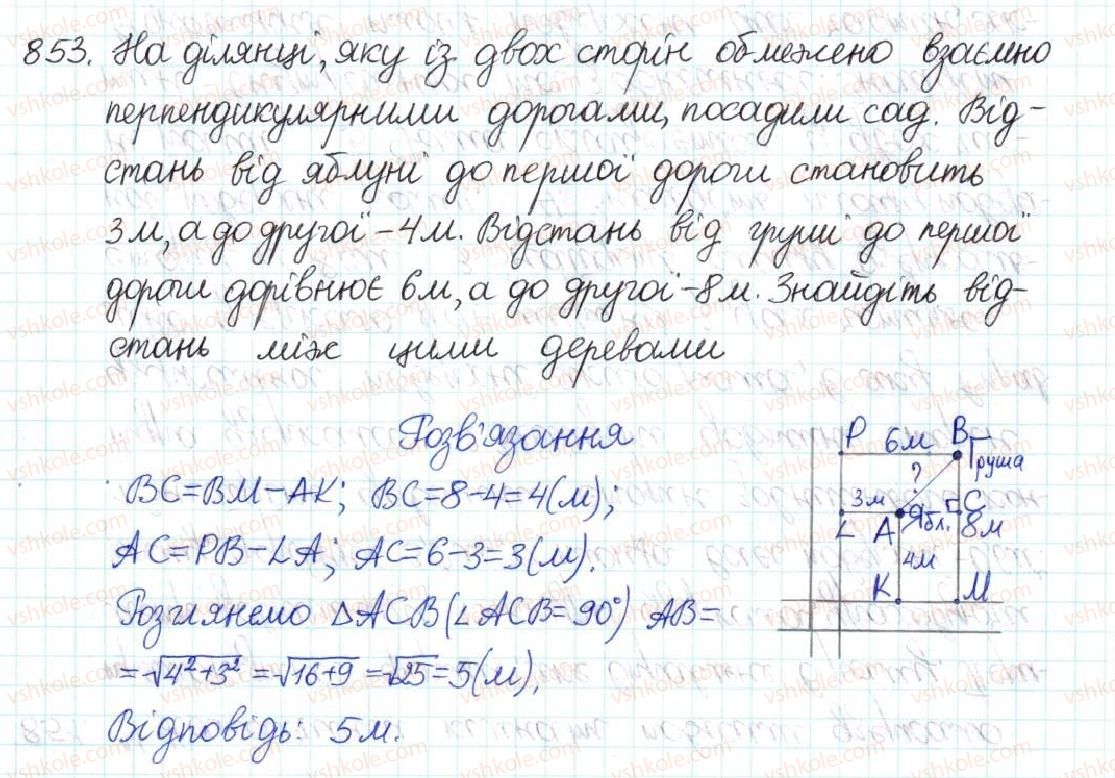 853. На ділянці, яку із двох сторін обмежено взаємно
перпендикулярними дорогами, посадили сад. Від-
стань від яблуні до першої дороги становить
3 м, а до другої – 4 м. Відстань від груші до першої
дороги дорівнює 6 м, а до другої – 8 м. Знайдіть від-
стань між цими деревами
Розв'язання
BC=BM-AK; BC=8-4=4(м);
AC=PB-LA; AC=6-3=3(м).
Розглянемо ΔACB(∠ACB=90°) AB=
=√4²+3² =√16+9 =√25=5(м),
Відповідь: 5м.
P 6м B
Груша
?
3м
L A Ябл. C
8м
4м
K M